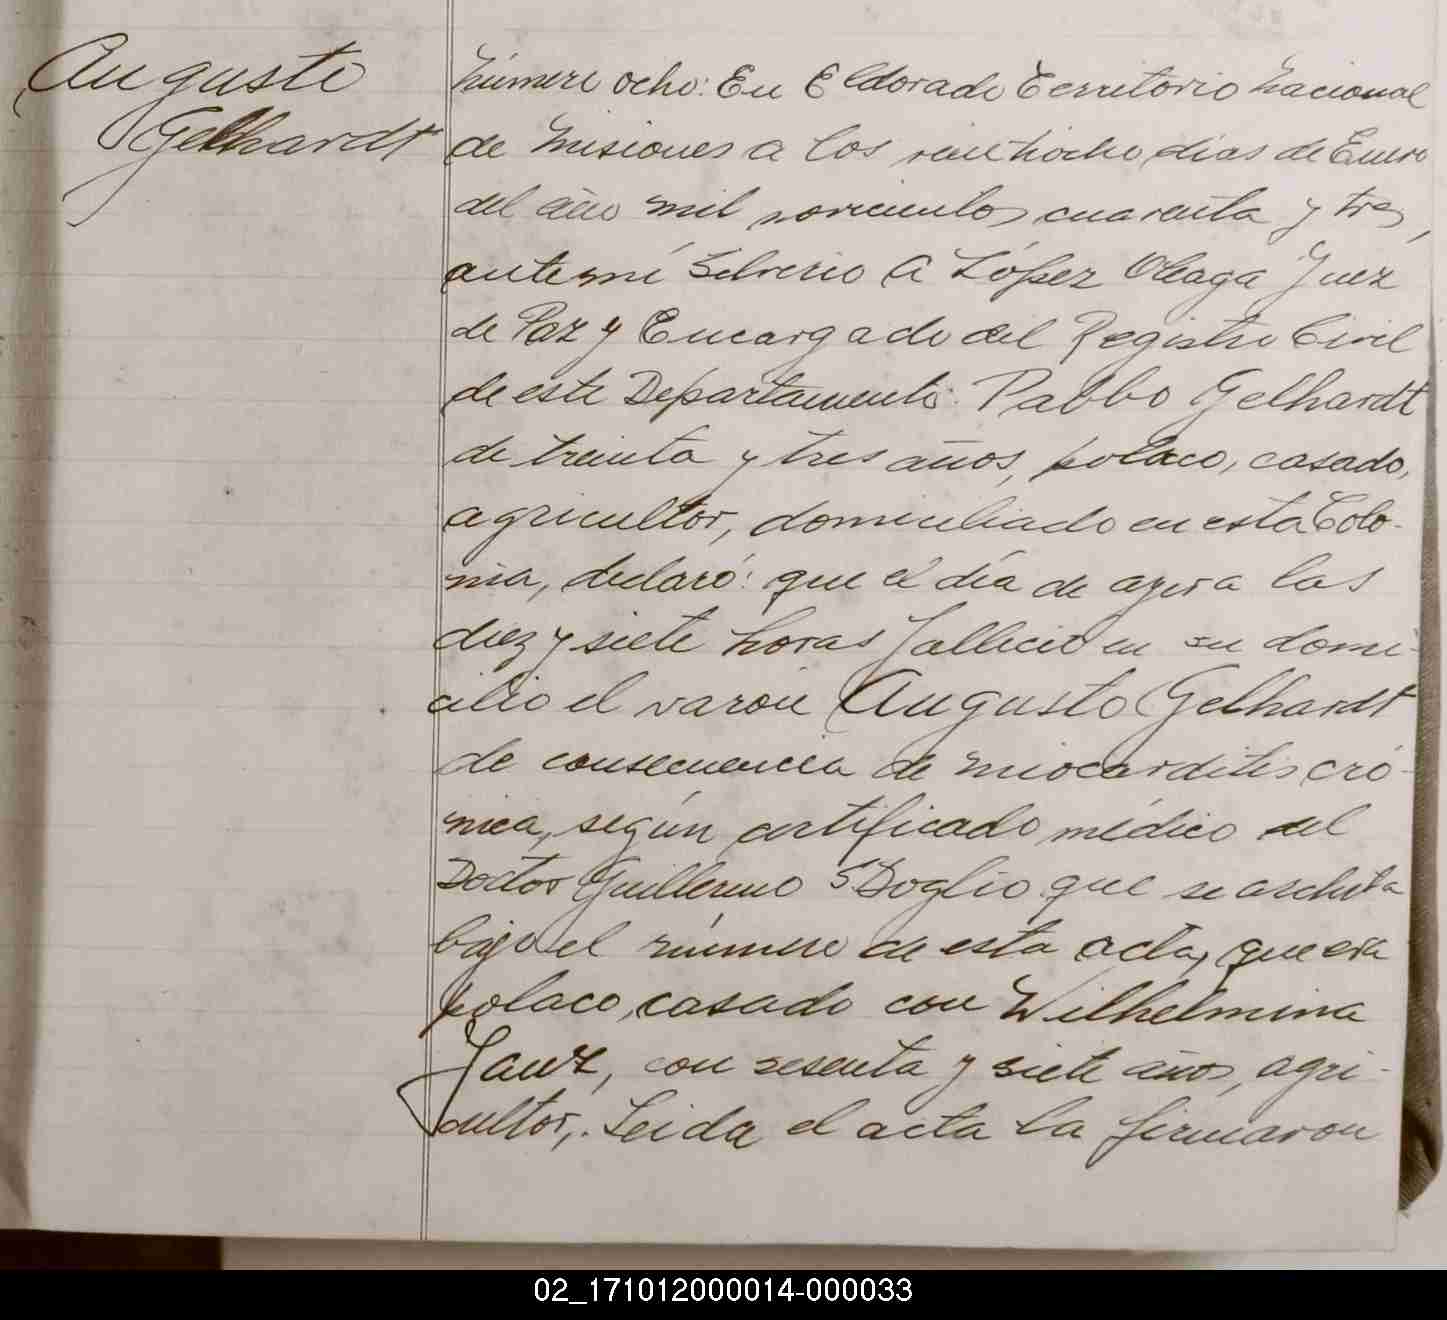 Augusto
Gelhardt
Número ocho: En Eldorado Territorio Nacional
de Misiones a los veintiocho días de Enero
del año mil novecientos cuarenta y tres,
ante mí Silverio A López Oleaga Juez
de Paz y Encargado del Registro Civil
de este Departamento: Pablo Gelhardt
de treinta y tres años, polaco, casado,
agricultor, domiciliado en esta Colo-
nia, declaró: que el día de ayer a las
diez y siete horas falleció en su domi-
cilio el varón Augusto Gelhardt
de consecuencia de miocarditis cró-
nica, según certificado médico del
Doctor Guillermo Doglio que se archiva
bajo el número de esta acta, que era
polaco, casado con Wilhelmina
Janz, con sesenta y siete años, agri-
cultor,. Leida el acta la firmaron
02_171012000014-000033